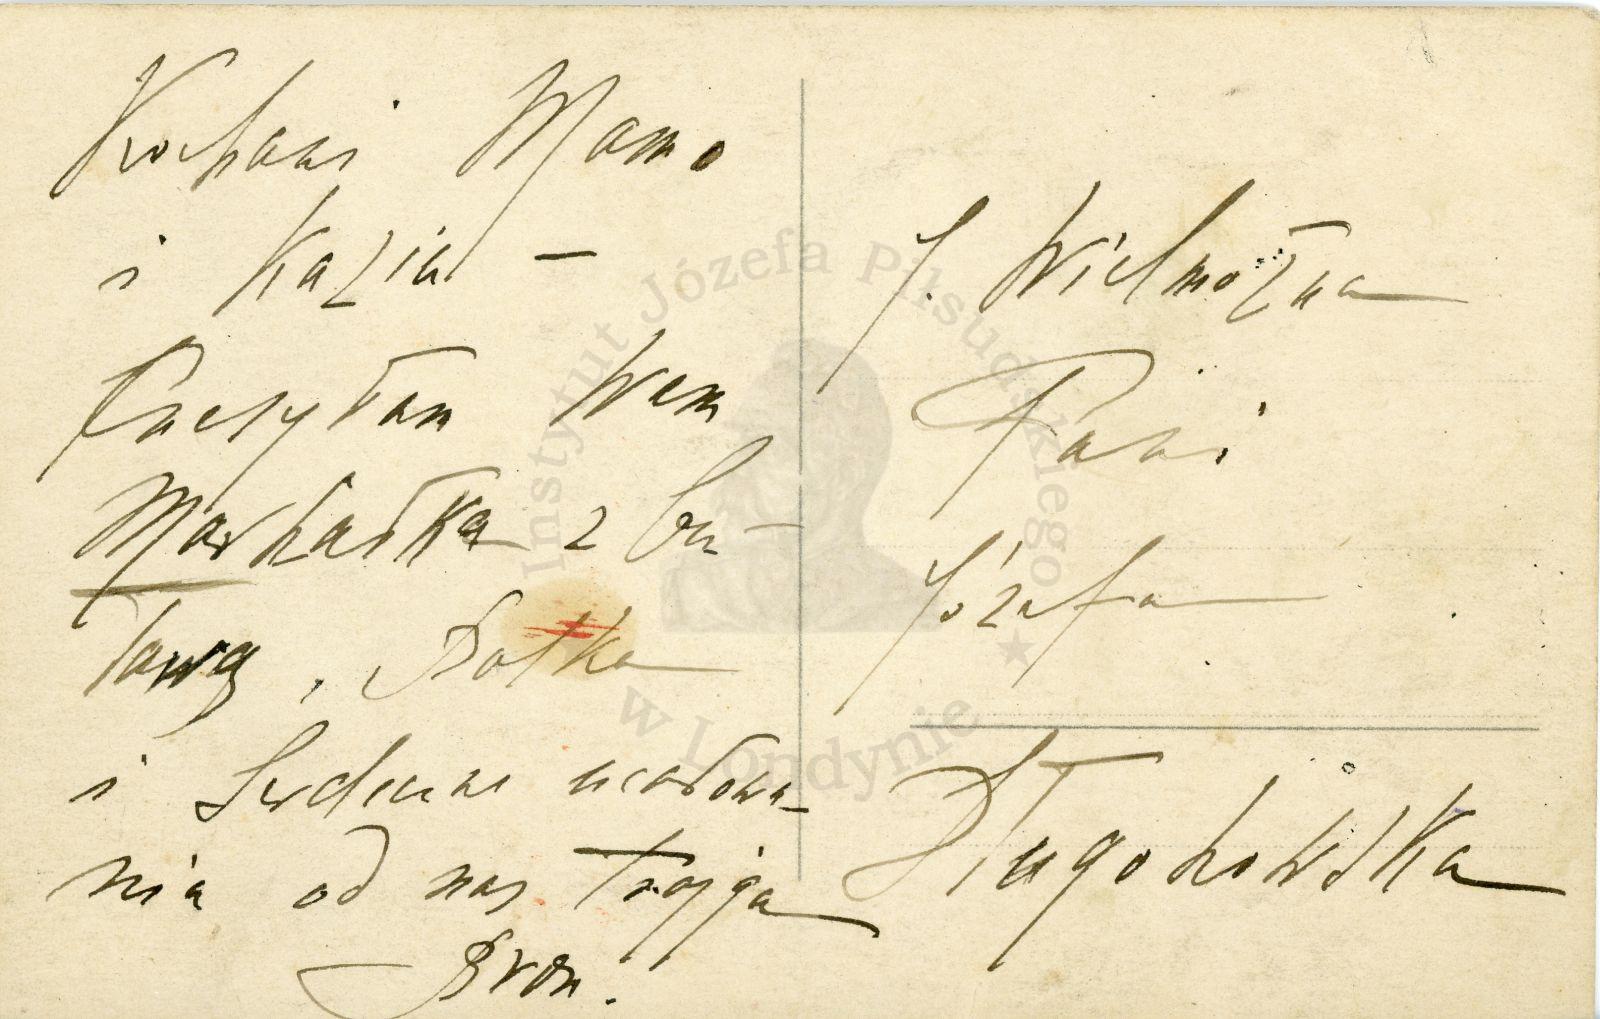 Kochani Mamo
i Kaziu –
Przesyłam Wam
Marszałka z bu-
ławą, Bolka
i Serdeczne ucałowa-
nia od nas trojga
Bron.
J. Wielmożna
Pani
Józefa
Długoszowska
Instytut Józefa Piłsudskiego
w Londynie